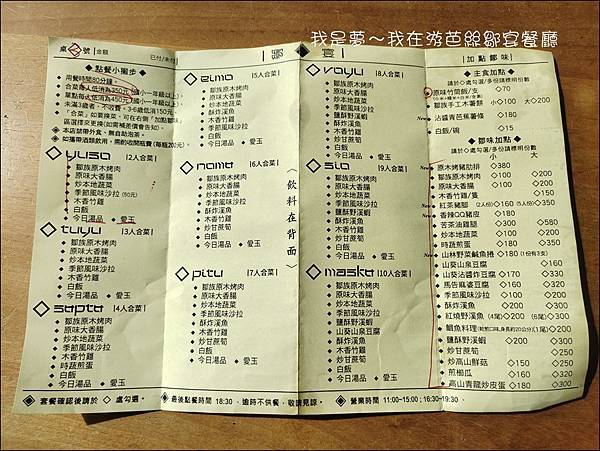 我是夢～我在游芭絲鄒宴餐廳
桌 號
金額
已付/未付
◆點餐小撇步◆
用餐時間80分鐘。
單點每人低消為450元(國小一年級以上)。
本店禁帶外食、無自助泡茶。
yuso |2人合菜|
鄒族原木烤肉
原味大香腸
炒本地蔬菜
季節風味沙拉 (50元)
木香竹雞
白飯
今日湯品 ◆ 愛玉
tuyu |3人合菜|
鄒族原木烤肉
原味大香腸
炒本地蔬菜
季節風味沙拉
木香竹雞
白飯
今日湯品 ◆ 愛玉
sopto |4人合菜|
鄒族原木烤肉
原味大香腸
炒本地蔬菜
季節風味沙拉
木香竹雞
時蔬煎蛋
白飯
今日湯品 ◆ 愛玉
eimo |5人合菜|
鄒族原木烤肉
原味大香腸
炒本地蔬菜
酥炸溪魚
木香竹雞
季節風味沙拉
白飯
今日湯品 ◆ 愛玉
nomo |6人合菜|
鄒族原木烤肉
原味大香腸
炒本地蔬菜
季節風味沙拉
酥炸溪魚
木香竹雞
炒甘蔗筍
白飯
今日湯品 ◆ 愛玉
pitu |7人合菜|
鄒族原木烤肉
原味大香腸
炒本地蔬菜
季節風味沙拉
酥炸溪魚
木香竹雞
炒甘蔗筍
時蔬煎蛋
白飯
今日湯品 ◆ 愛玉
|鄒 宴|
〈飲料在背面〉
voyu |8人合菜|
鄒族原木烤肉
原味大香腸
炒本地蔬菜
酥炸溪魚
鹽酥野溪蝦
山葵山泉豆腐
木香竹雞
季節風味沙拉
白飯
今日湯品 ◆ 愛玉
sio |9人合菜|
鄒族原木烤肉
原味大香腸
炒本地蔬菜
季節風味沙拉
酥炸溪魚
鹽酥野溪蝦
木香竹雞
炒甘蔗筍
白飯
今日湯品 ◆ 愛玉
maskʉ |10人合菜|
鄒族原木烤肉
原味大香腸
炒本地蔬菜
季節風味沙拉
酥炸溪魚
鹽酥野溪蝦
山葵山泉豆腐
木香竹雞
炒甘蔗筍
白飯
今日湯品 ◆ 愛玉
|加點鄒味|
◆主食加點◆
請於◇處勾選/多份請標明份數
原味竹筒飯/支 ◇70
鄒族手工木薯餅 小◇100 大◇200
沾醬青芭蕉薯條 ◇180
白飯/碗 ◇15
◆鄒味加點◆
請於◇處勾選/多份請標明份數
小 大
原木烤豬肋排 ◇380
鄒族原木烤肉 ◇100 ◇200
原味大香腸 ◇100 ◇200
木香竹雞/隻 ◇150
紅茶豬腳 (2人份)◇160 (5人份)◇350
香辣QQ豬皮 ◇180
苦茶油雞翅 ◇300 ◇580
炒本地蔬菜 ◇100 ◇200
時蔬煎蛋 ◇100 ◇200
山林野菜鹹魚捲 ◇180 (1份有3支)
山葵山泉豆腐 ◇200
山葵沾醬炸豆腐 ◇170 ◇330
馬告麻婆豆腐 ◇160 ◇300
季節風味沙拉 ◇100 ◇200
酥炸溪魚 ◇200 ◇300
紅燒野溪魚 (4尾)◇200 (6尾)◇300
鯛魚料理 (1尾)◇200
鹽酥野溪蝦 ◇200 ◇300
炒甘蔗筍 ◇250
炒高山鮮菇 ◇150 ◇250
煎櫛瓜 ◇160 ◇250
高山青龍炒皮蛋 ◇180 ◇300
◆套餐確認後請於 ◇ 處勾選。
◈最後點餐時間 18:30，逾時不供餐，敬請見諒。
◈營業時間 11:00~15:00；16:30~19:30。